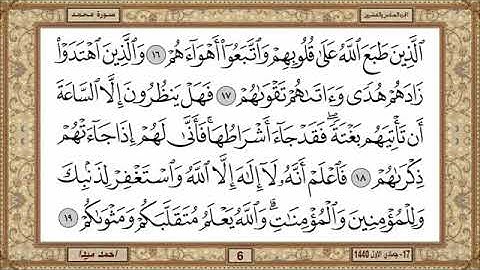 الجزء السادس والعشرون
سورة محمد
الَّذِينَ طَبَعَ اللَّهُ عَلَىٰ قُلُوبِهِمْ وَاتَّبَعُوا أَهْوَاءَهُمْ ١٦ وَالَّذِينَ اهْتَدَوْا
زَادَهُمْ هُدًى وَءَاتَىٰهُمْ تَقْوَىٰهُمْ ١٧ فَهَلْ يَنظُرُونَ إِلَّا السَّاعَةَ
أَن تَأْتِيَهُم بَغْتَةً ۖ فَقَدْ جَاءَ أَشْرَاطُهَا ۚ فَأَنَّىٰ لَهُمْ إِذَا جَاءَتْهُمْ
ذِكْرَىٰهُمْ ١٨ فَاعْلَمْ أَنَّهُ لَا إِلَٰهَ إِلَّا اللَّهُ وَاسْتَغْفِرْ لِذَنبِكَ
وَلِلْمُؤْمِنِينَ وَالْمُؤْمِنَاتِ ۗ وَاللَّهُ يَعْلَمُ مُتَقَلَّبَكُمْ وَمَثْوَىٰكُمْ ١٩
17- جمادي الاول 1440
6